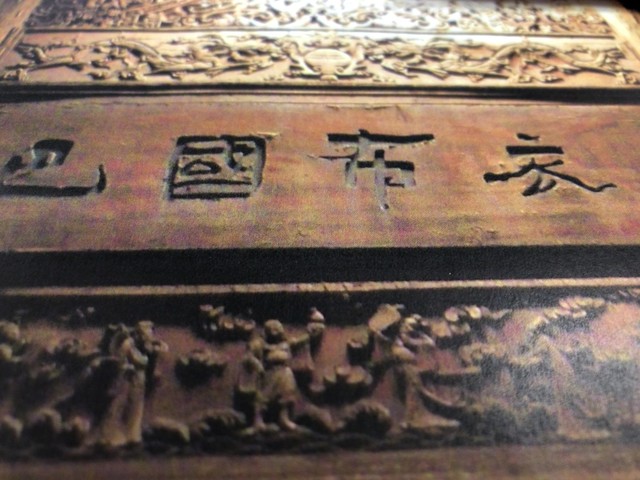 巴國布衣